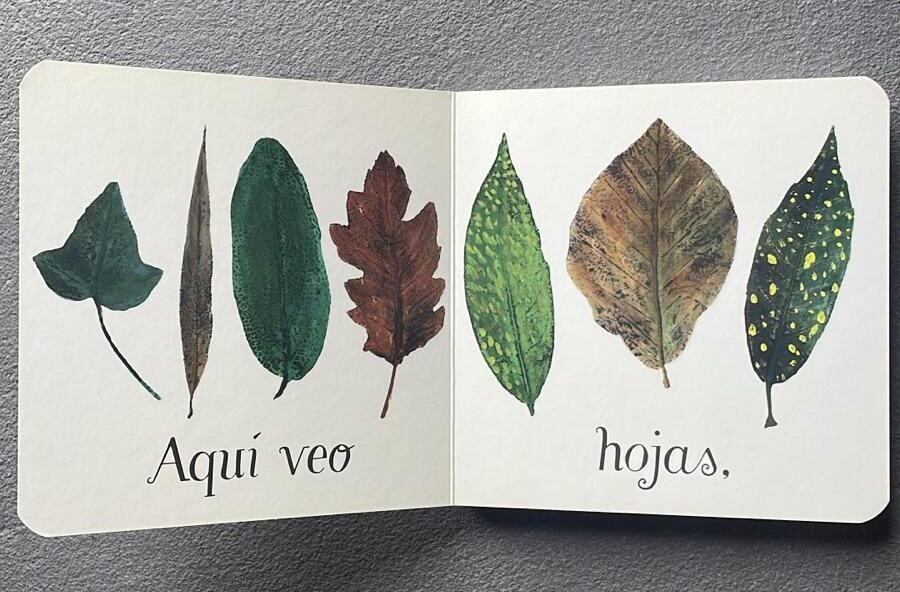 Aquí veo
hojas,